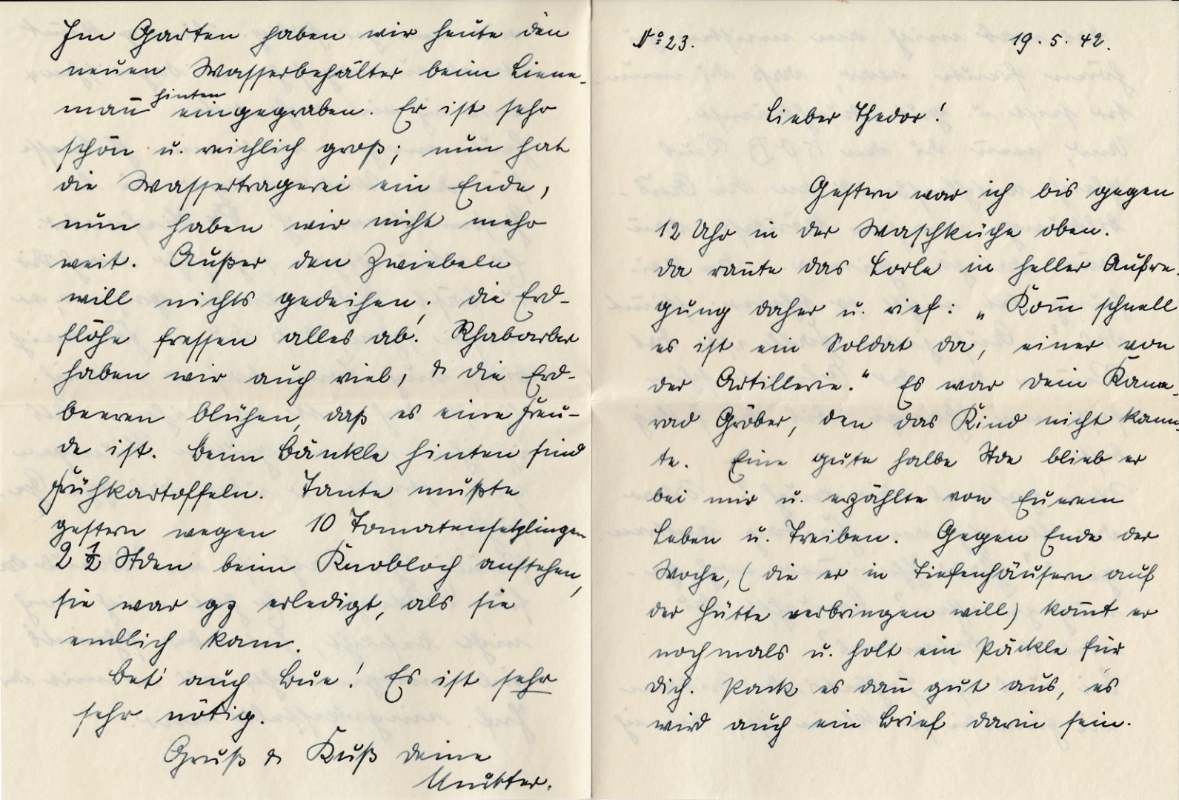 No 23. 19.5.42.
Lieber Thedor!
Gestern war ich bis gegen
12 Uhr in der Waschküche oben.
da rañte das Lorle in heller Aufre-
gung daher u. rief: „Kom̄ schnell
es ist ein Soldat da, einer von
der Artillerie.“ Es war dein Kame-
rad Gröber, den das Kind nicht kann-
te. Eine gute halbe Stde blieb er
bei mir u. erzählte von Eurem
Leben u. Treiben. Gegen Ende der
Woche, (die er in Tiefenhäusern auf
der Hütte verbringen will) kom̄t er
nochmals u. holt ein Päckle für
dich. Pack es dañ gut aus, es
wird auch ein Brief darin sein.
Im Garten haben wir heute den
neuen Wasserbehälter beim Liene-
mañ hinten eingegraben. Er ist sehr
schön u. reichlich groß; nun hat
die Wassertragerei ein Ende,
nun haben wir nicht mehr
weit. Außer den Zwiebeln
will nichts gedeihen; die Erd-
flöhe fressen alles ab. Rhabarber
haben wir auch viel, & die Erd-
beeren blühen, daß es eine Freu-
de ist. beim Bänkle hinten sind
Frühkartoffeln. Tante mußte
gestern wegen 10 Tomatensetzlingen
2 1/2 Stden beim Knobloch anstehen,
sie war gz erledigt, als sie
endlich kam.
bet' auch Bue! Es ist sehr
sehr nötig.
Gruß & Kuß deine
Mutter.